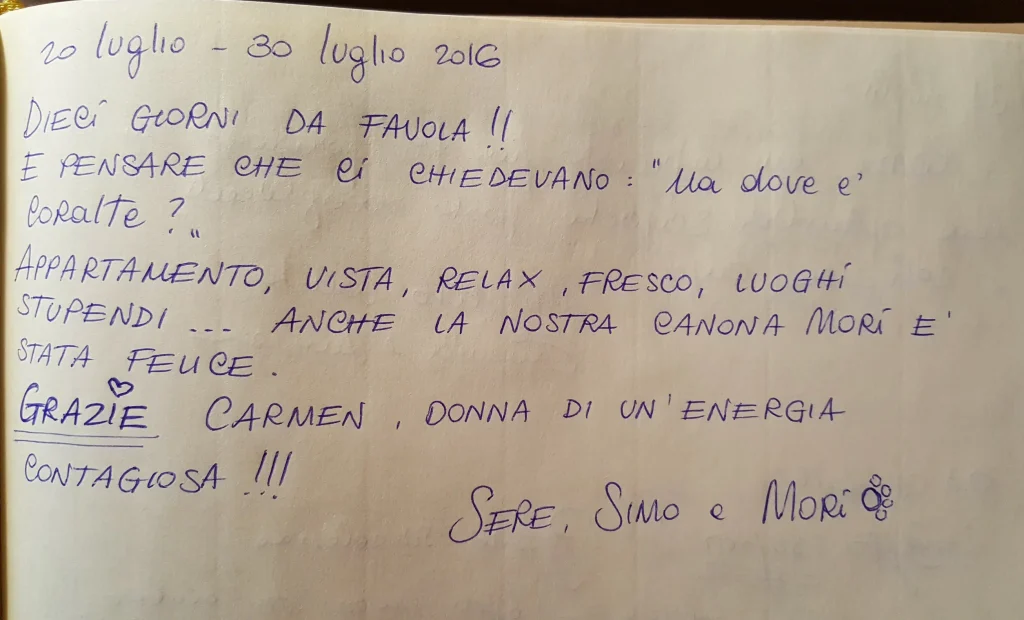 20 luglio - 30 luglio 2016
DIECI GIORNI DA FAVOLA!!
E PENSARE CHE CI CHIEDEVANO: "Ma dove e'
CORALTE?"
APPARTAMENTO, VISTA, RELAX, FRESCO, LUOGHI
STUPENDI... ANCHE LA NOSTRA CANONA MORI E'
STATA FELICE.
GRAZIE CARMEN, DONNA DI UN'ENERGIA
CONTAGIOSA!!!
SERE, SIMO e MORI